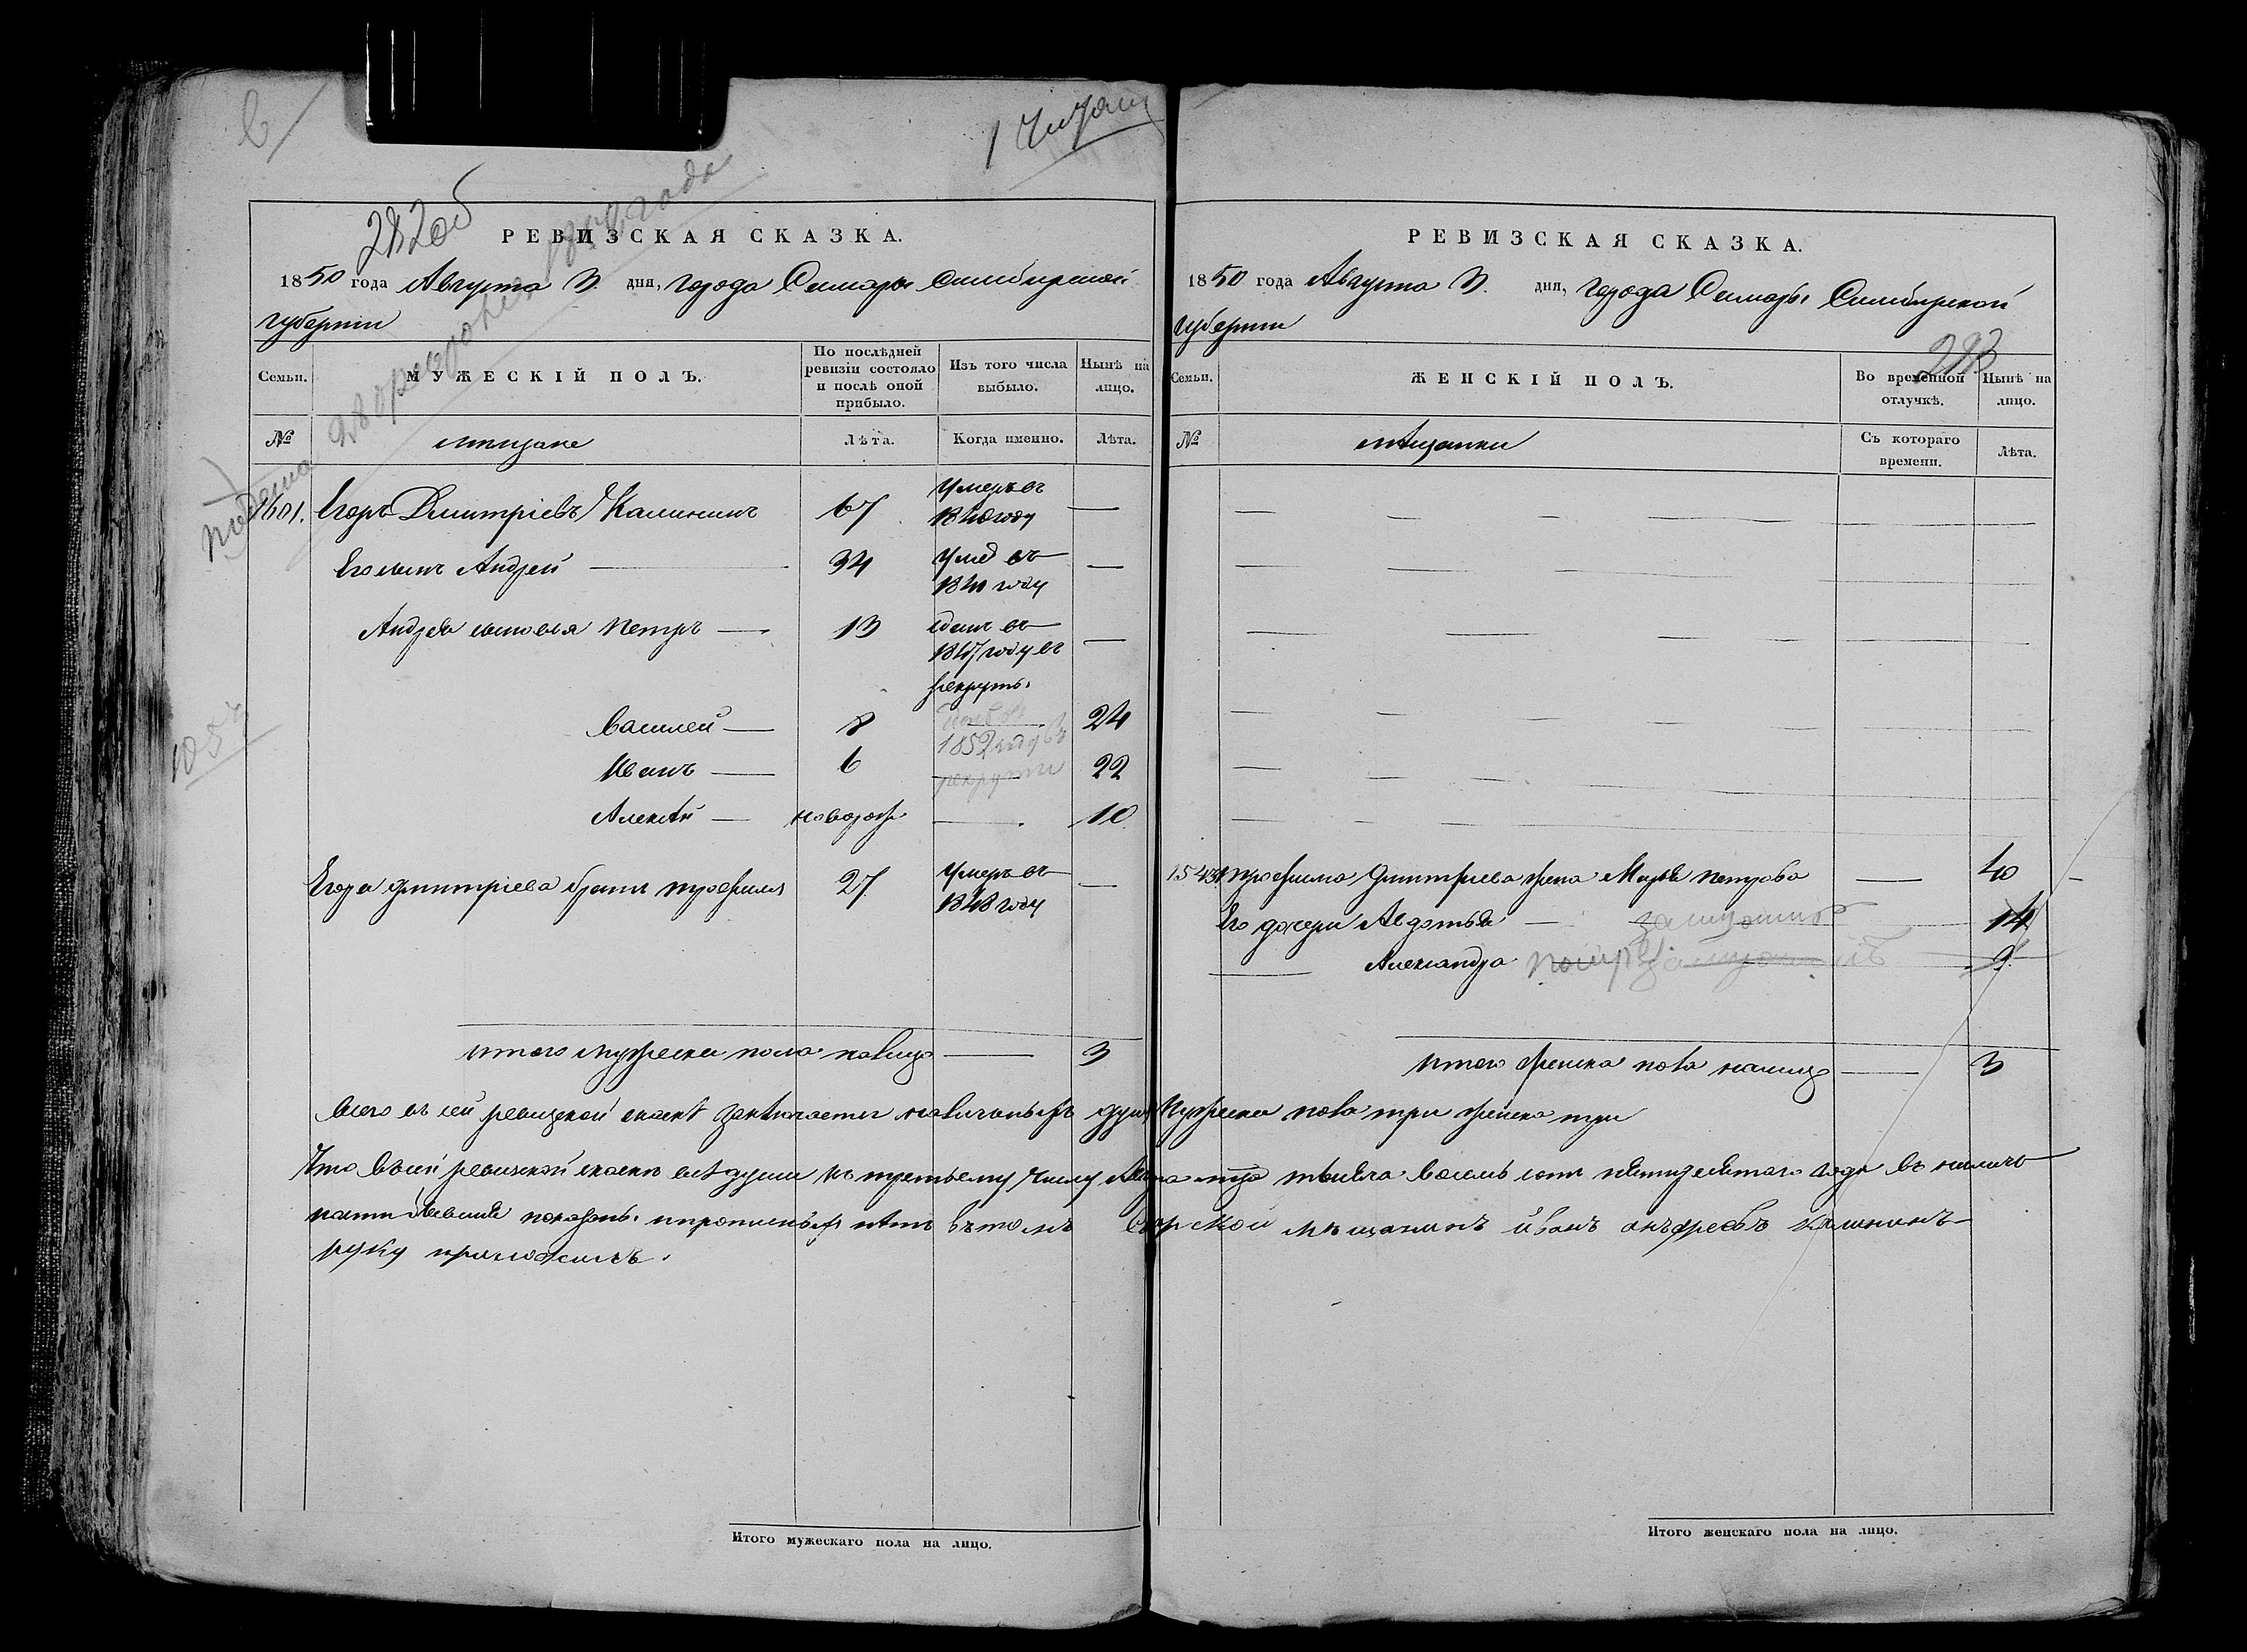 282об
РЕВИЗСКАЯ СКАЗКА.
1850 года Августа 3. дня, города Самары Симбирской
губернии
Семьи.
МУЖЕСКІЙ ПОЛЪ.
По послѣдней ревизіи состояло и послѣ оной прибыло.
Изъ того числа выбыло.
Нынѣ на лицо.
№
мещане
Лѣта.
Когда именно.
Лѣта.
1601. Егоръ Дмитріевъ Калининъ 67 умеръ въ —
1840 году
Его сынъ Андрей — 34 умер въ —
году
Андрея сыновья Петръ — 13 сданъ въ —
1847 году въ
рекруты.
Василей — 8 24
1852 году въ
Иванъ — 6 рекруты 22
Алексѣй — новорож — 10
Егора Дмитриева братъ Трофимъ 27. умеръ въ —
1848 году
итого мужеска пола налицо — 3
РЕВИЗСКАЯ СКАЗКА.
1850 года Августа 3. дня, города Самары Симбирской
губернии
283
Семьи.
ЖЕНСКІЙ ПОЛЪ.
Во временной отлучкѣ.
Нынѣ на лицо.
№
мѣщанки
Съ котораго времени.
Лѣта.
Трофима Дмитриева жена Марья Петрова — 40
Его дочери Авдотья — замужемъ 14
Александра 9.
итого женска пола налицо — 3
всего въ сей ревизской сказкѣ заключается наличныхъ душъ мужеска пола три женска три
Что въсей ревизской сказкѣ всѣ души къ третьему числу Августа тысяча восемь сотъ пятидесятаго года въ наличъ
ности показаны. и прописныхъ нѣтъ вътомъ мѣщанинъ иванъ анъдреевъ калининъ
руку приложилъ.
Итого мужескаго пола на лицо.
Итого женскаго пола на лицо.